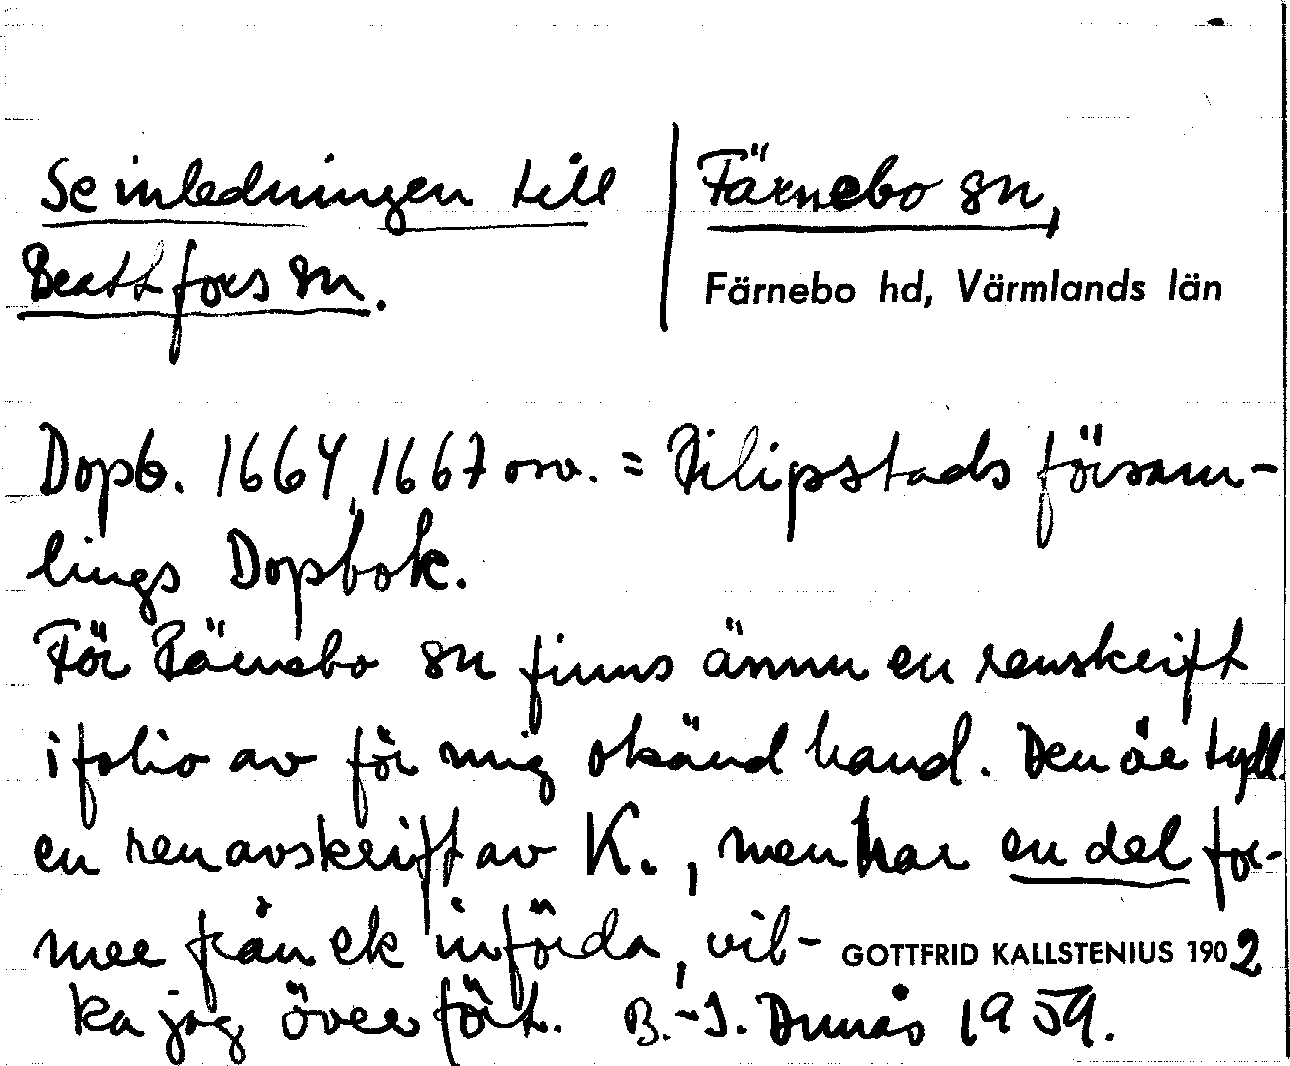 Se inledningen till
Brattfors sn.
Färnebo sn,
Färnebo hd, Värmlands län
Dopb. 1664, 1667 osv. = Filipstads försam-
lings Dopbok.
För Färnebo sn finns ännu en renskrift
i folio av för mig okänd hand. Den är tydl.
en renavskrift av K., men har en del for-
mer från ek införda, vil-
GOTTFRID KALLSTENIUS 1902
ka jag överfört. B.-I. Dunås 1959.